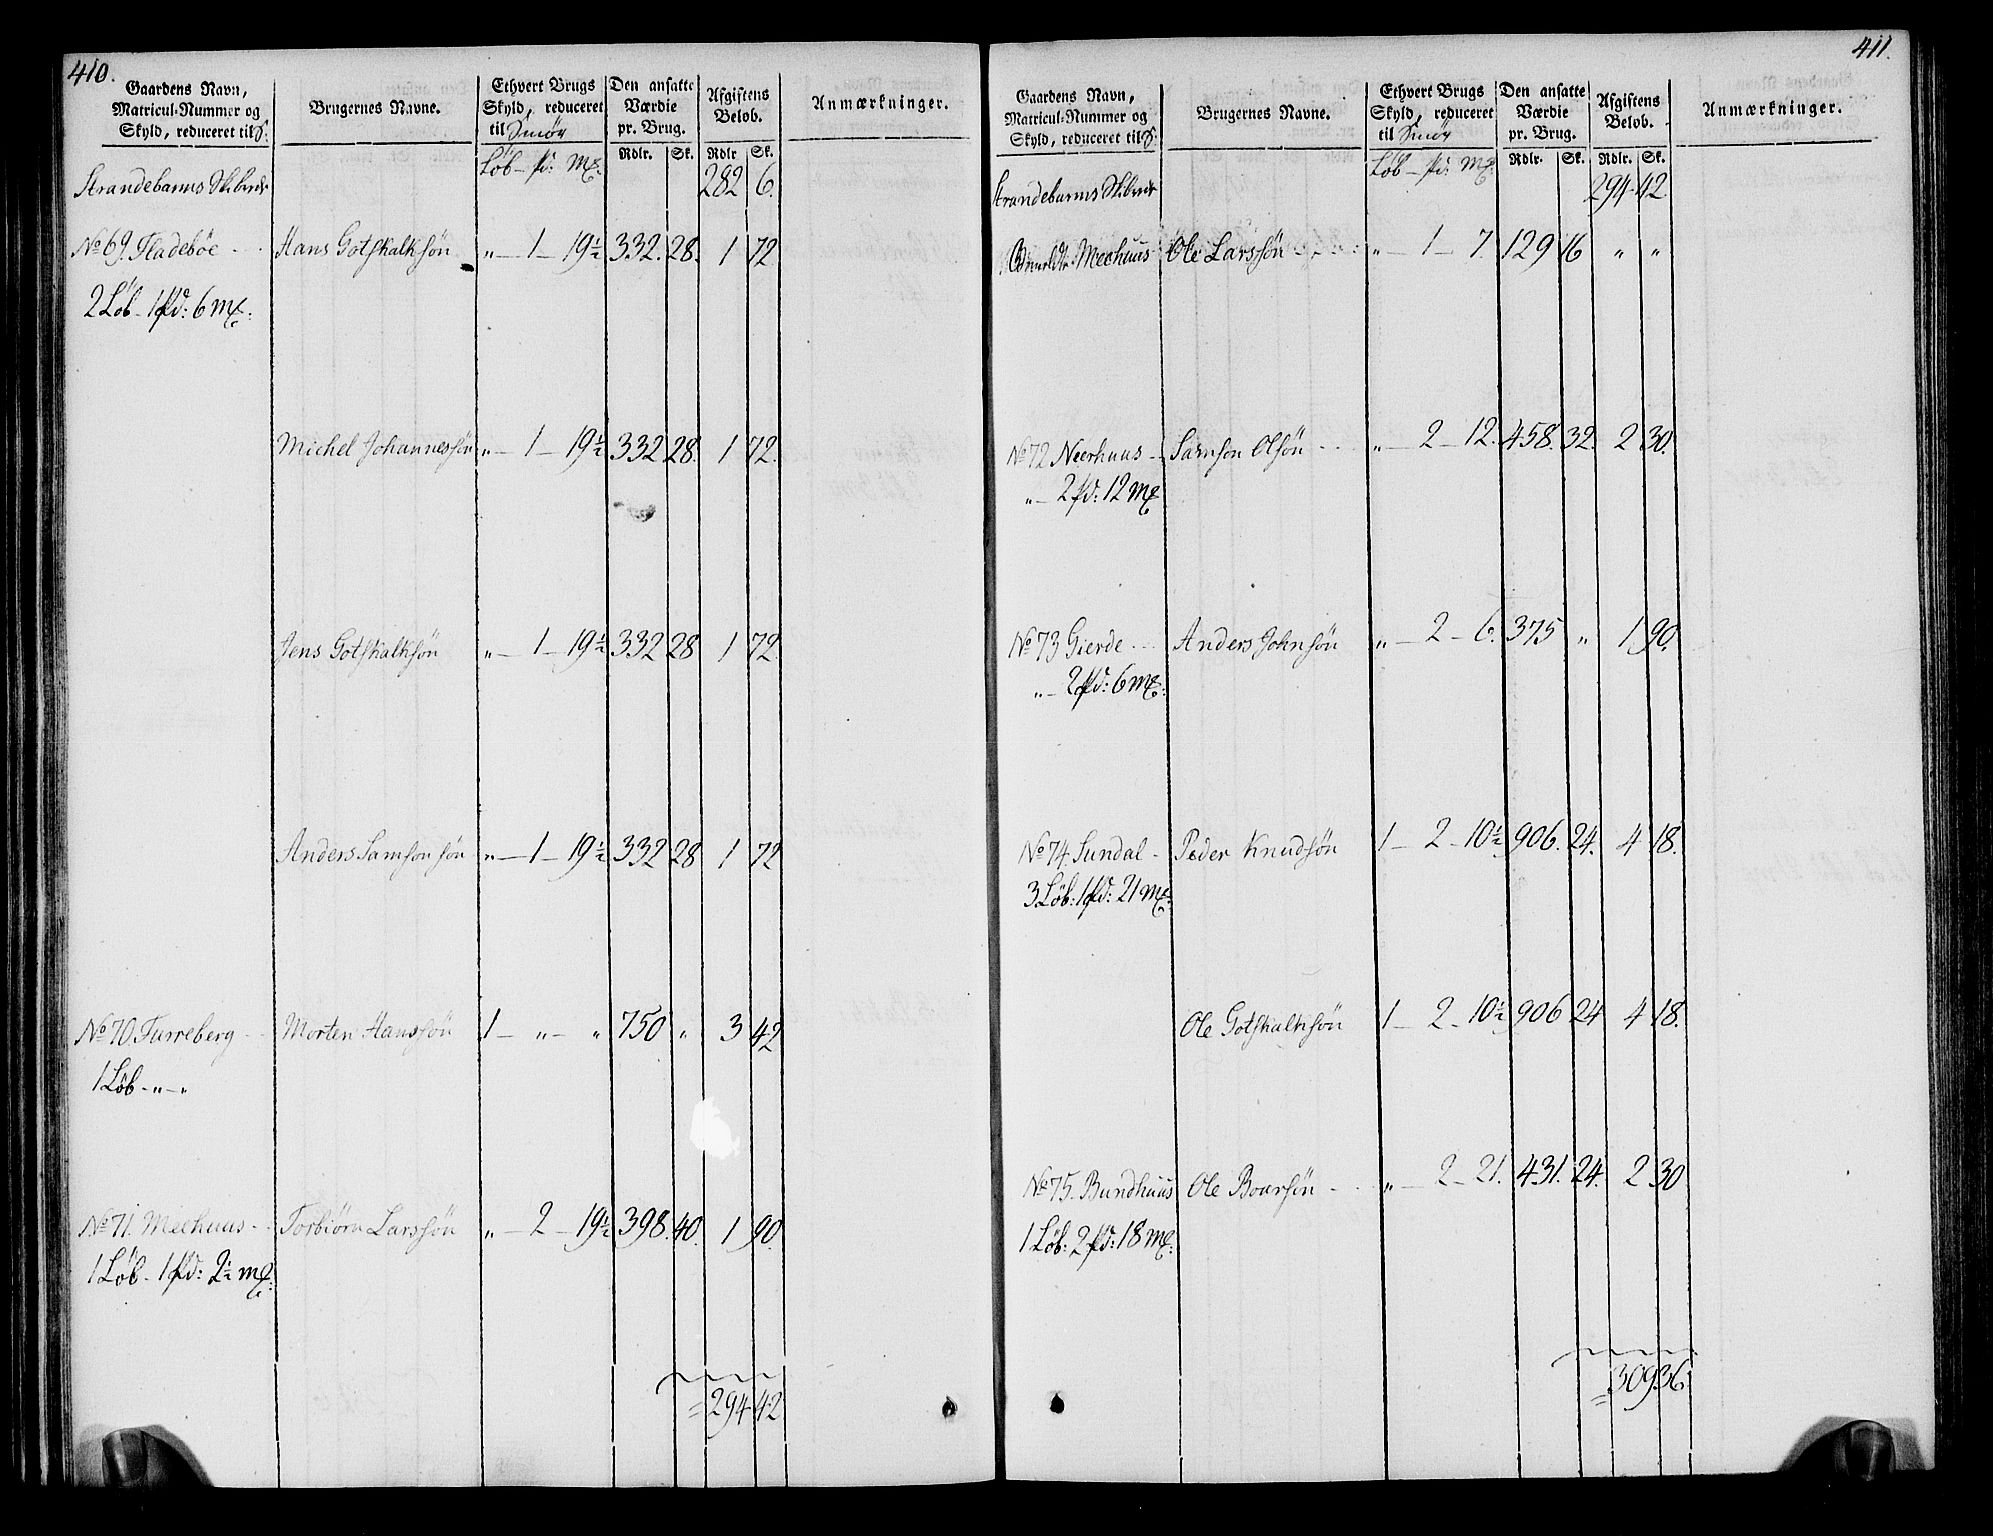 410.
Gaardens Navn, Matricul-Nummer og Skyld, reduceret til S: | Brugernes Navne. | Ethvert Brugs Skyld, reduceret til Smör | Den ansatte Værdie pr. Brug. | Afgiftens Beløb. | Anmærkninger.
Löb – pd: mg: | Rdlr. | Sk. | Rdlr | Sk.
Strandebarms Skibrede | 282 | 6.
No 69. Fladebøe | Hans Gotskalksön | „ – 1 – 19½ | 332. | 28. | 1 | 72
2 Löb – 1 pd: 6 mg:
Michel Johannessön | „ – 1 – 19½ | 332 | 28. | 1 | 72.
Jens Gotskalksön | „ – 1 – 19½ | 332 | 28 | 1 | 72.
Anders Samsonsön | „ – 1 – 19½ | 332 | 28 | 1 | 72
No 70. Furreberg | Morten Hanssön | 1 – „ – „ | 750 | „ | 3 | 42
1 Löb – „ – „
No 71. Meehuus | Torbiörn Larssön | „ – 2 – 19½ | 398. | 40. | 1 | 90.
1 Löb – 1 pd: 2½ mg:
= 294 | 42
411.
Gaardens Navn, Matricul-Nummer og Skyld, reduceret til S: | Brugernes Navne. | Ethvert Brugs Skyld, reduceret til Smör | Den ansatte Værdie pr. Brug. | Afgiftens Beløb. | Anmærkninger.
Löb – pd: mg: | Rdlr. | Sk. | Rdlr. | Sk.
Strandebarms Skibrede | 294 | 42.
Meehuus | Ole Larssön | „ – 1 – 7. | 129 | 16 | „ | „
No 72 Neerhuus | Samson Olsön | „ – 2 – 12. | 458. | 32. | 2 | 30.
„ – 2 pd: 12 mg
No 73 Gierde | Anders Johnsön | „ – 2 – 6. | 375 | „ | 1 | 90.
„ – 2 pd: 6 mg:
No 74. Sundal | Peder Knudsön | 1 – 2 – 10½ | 906. | 24. | 4 | 18.
3 Löb: 1 pd: 21 mg:
Ole Gotskalksön | 1 – 2 – 10½ | 906 | 24 | 4 | 18.
No 75. Bundhuus | Ole Boarsön | „ – 2 – 21. | 431. | 24. | 2 | 30
1 Löb: 2 pd: 18 mg:
= 309 | 36.